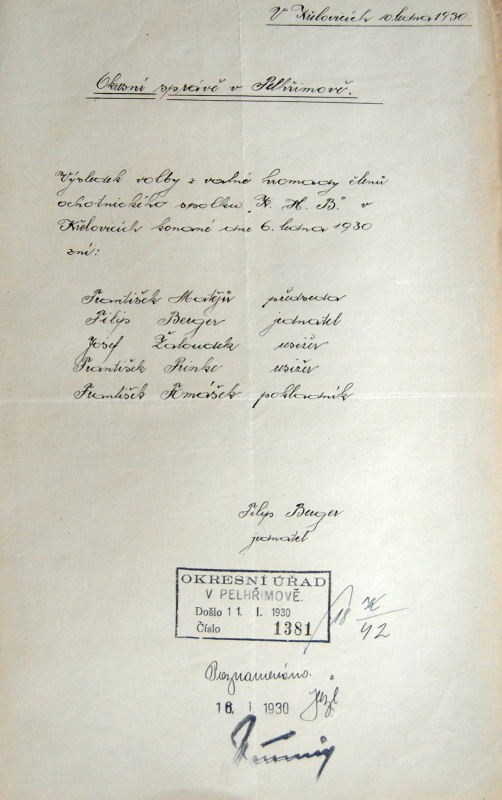 V Křelovicích 10. ledna 1930.
Okresní správě v Pelhřimově.
Výsledek volby z valné hromady členů
ochotnického spolku „K. H. B" v
Křelovicích konané dne 6. ledna 1930
zní:
František Matějů předseda
Filip Berger jednatel
Josef Žaloudek režisér
František Rinke režisér
František Tomášek pokladník
Filip Berger
jednatel
OKRESNÍ ÚŘAD
V PELHŘIMOVĚ.
Došlo 11. I. 1930
Číslo 1381
18 42
Poznamenáno.
18. I 1930